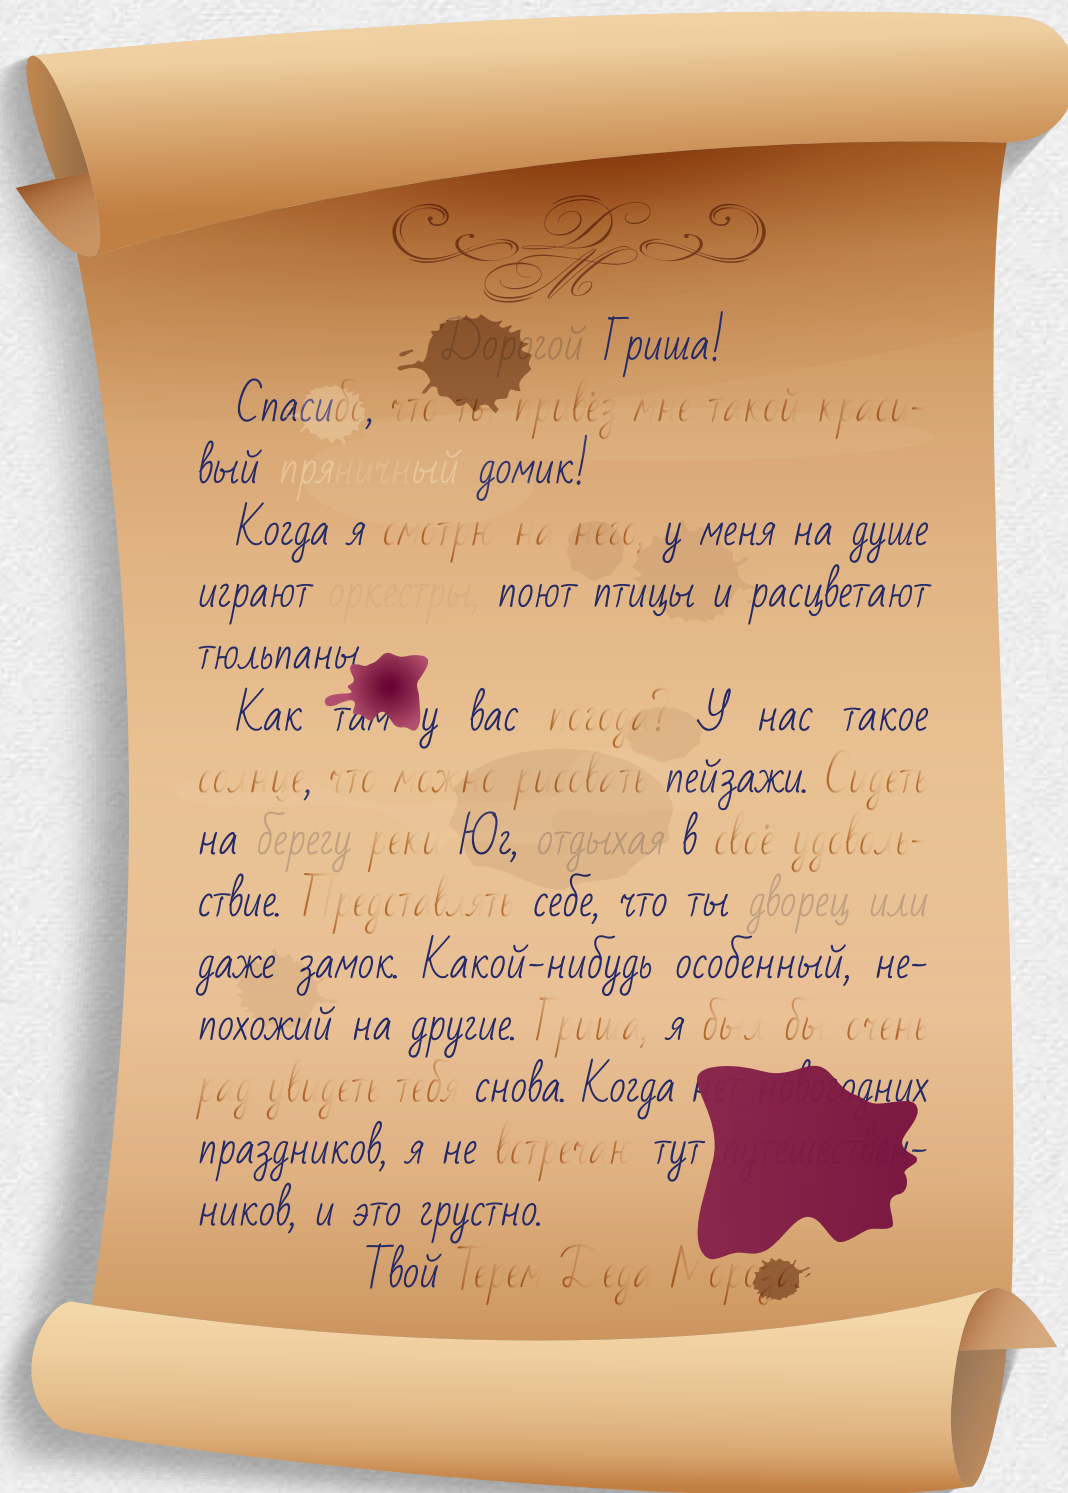 ДМ
Дорогой Гриша!
Спасибо, что ты привёз мне такой краси-
вый пряничный домик!
Когда я смотрю на него, у меня на душе
играют оркестры, поют птицы и расцветают
тюльпаны
Как там у вас погода? У нас такое
солнце, что можно рисовать пейзажи. Сидеть
на берегу реки Юг, отдыхая в своё удоволь-
ствие. Представлять себе, что ты дворец или
даже замок. Какой-нибудь особенный, не-
похожий на другие. Гриша, я был бы очень
рад увидеть тебя снова. Когда нет новогодних
праздников, я не встречаю тут путешествен-
ников, и это грустно.
Твой Терем Деда Мороза.